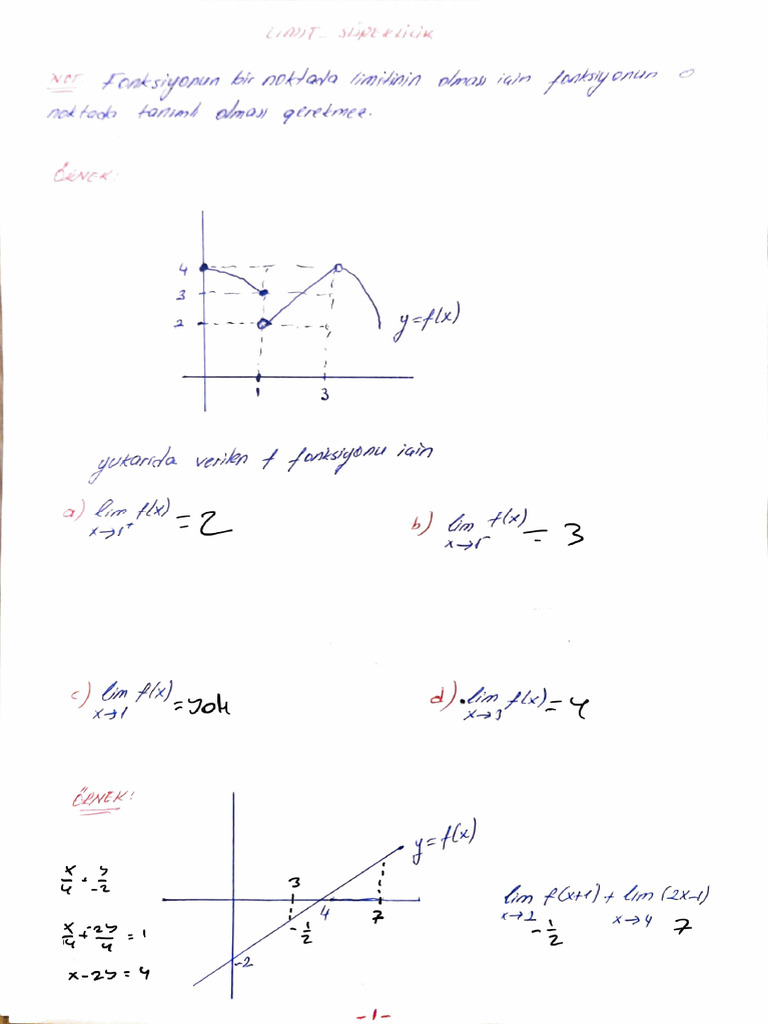 LİMİT - SÜREKLİLİK
NOT Fonksiyonun bir noktada limitinin olması için fonksiyonun o
noktada tanımlı olması gerekmez.
ÖRNEK:
4
3
2
y=f(x)
1
3
yukarıda verilen f fonksiyonu için
a) lim f(x) = 2
x→1⁺
b) lim f(x) = 3
x→1⁻
c) lim f(x) = yok
x→1
d) lim f(x) = 4
x→3
ÖRNEK:
y=f(x)
x/4 + y/-2
3
4
7
-1/2
-2
x/4 + -2y/4 = 1
x-2y=4
lim f(x+1) + lim (2x-1)
x→2 x→4
-1/2 7
-1-